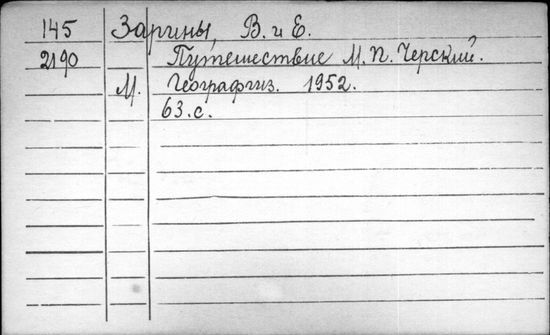 145 Зарины, В. и Е.
2190 Путешествие М. П. Черский.
М. Географгиз. 1952.
63.с.